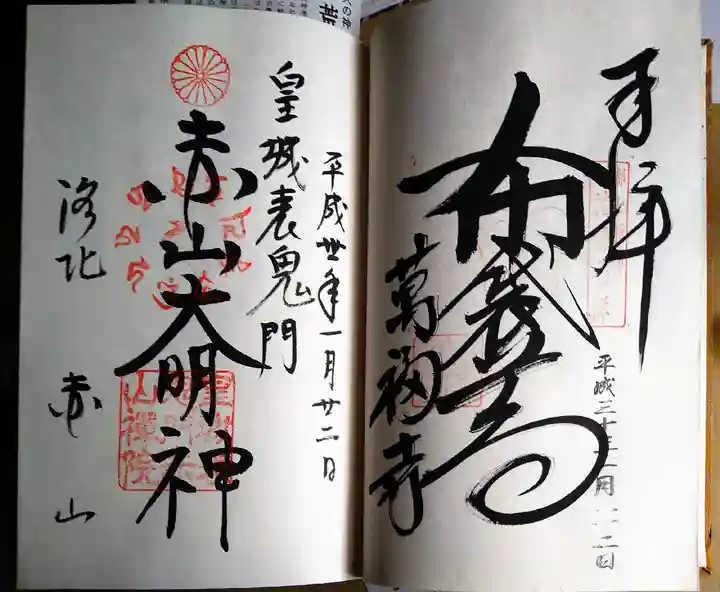 奉拝
布袋尊
萬福寺
平成三十年一月二十二日
平成卅年一月廿二日
皇城表鬼門
赤山大明神
洛北 赤山